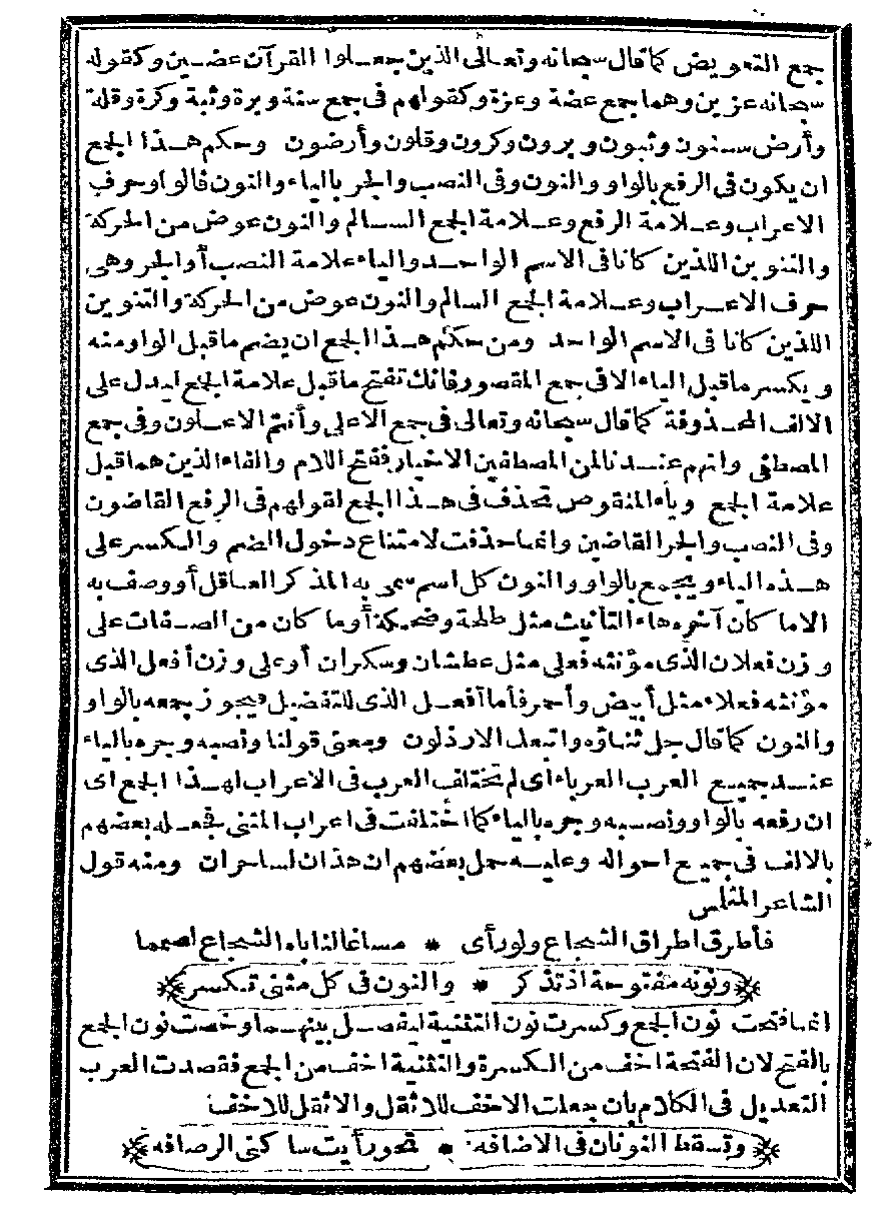 جمع التعويض كما قال سبحانه وتعالى الذين جعلوا القرآن عضين وكقوله
سبحانه عزين وهما جمع عضة وعزة وكقولهم فى جمع سنة وبرة وثبة وكرة وقلة
وأرض سنون وثبون وبرون وكرون وقلون وأرضون وحكم هذا الجمع
ان يكون فى الرفع بالواو والنون وفى النصب والجر بالياء والنون فالواو حرف
الاعراب وعلامة الرفع وعلامة الجمع السالم والنون عوض من الحركة
والتنوين اللذين كانا فى الاسم الواحد والياء علامة النصب أو الجر وهى
حرف الاعراب وعلامة الجمع السالم والنون عوض من الحركة والتنوين
اللذين كانا فى الاسم الواحد ومن حكم هذا الجمع ان يضم ماقبل الواو منه
ويكسر ماقبل الياء الا فى جمع المقصور فانك تفتح ماقبل علامة الجمع ليدل على
الالف المحذوفة كما قال سبحانه وتعالى فى جمع الاعلى وأنتم الاعلون وفى جمع
المصطفى وانهم عندنا لمن المصطفين الاخيار ففتح اللام والفاء الذين هما قبل
علامة الجمع وياء المنقوص تحذف فى هذا الجمع لقولهم فى الرفع القاضون
وفى النصب والجر القاضين وانما حذفت لامتناع دخول الضم والكسر على
هذه الياء ويجمع بالواو والنون كل اسم سمى به المذكر العاقل أو وصف به
الا ما كان آخره هاء التأنيث مثل طلحة وضحكة أو ما كان من الصفات على
وزن فعلان الذى مؤنثه فعلى مثل عطشان وسكران أو على وزن أفعل الذى
مؤنثه فعلاء مثل أبيض وأحمر فأما أفعل الذى للتفضيل فيجوز جمعه بالواو
والنون كما قال جل ثناؤه واتبعك الارذلون ومعنى قولنا ونصبه وجره بالياء
عند جميع العرب العرباء أى لم تختلف العرب فى الاعراب لهذا الجمع اى
ان رفعه بالواو ونصبه وجره بالياء كما اختلفت فى اعراب المثنى فجعله بعضهم
بالالف فى جميع احواله وعليه حمل بعضهم ان هذان لساحران ومنه قول
الشاعر المتلمس
فأطرق اطراق الشجاع ولو رأى * مساغا لناباه الشجاع لصمما
ونونه مفتوحة اذ تذكر * والنون فى كل مثنى تكسر
انما فتحت نون الجمع وكسرت نون التثنية ليفصل بينهما وخصت نون الجمع
بالفتح لان الفتحة اخف من الكسرة والتثنية اخف من الجمع فقصدت العرب
التعديل فى الكلام بان جعلت الاخف للاثقل والاثقل للاخف
وتسقط النونان فى الاضافه * نحو رأيت ساكنى الرصافه